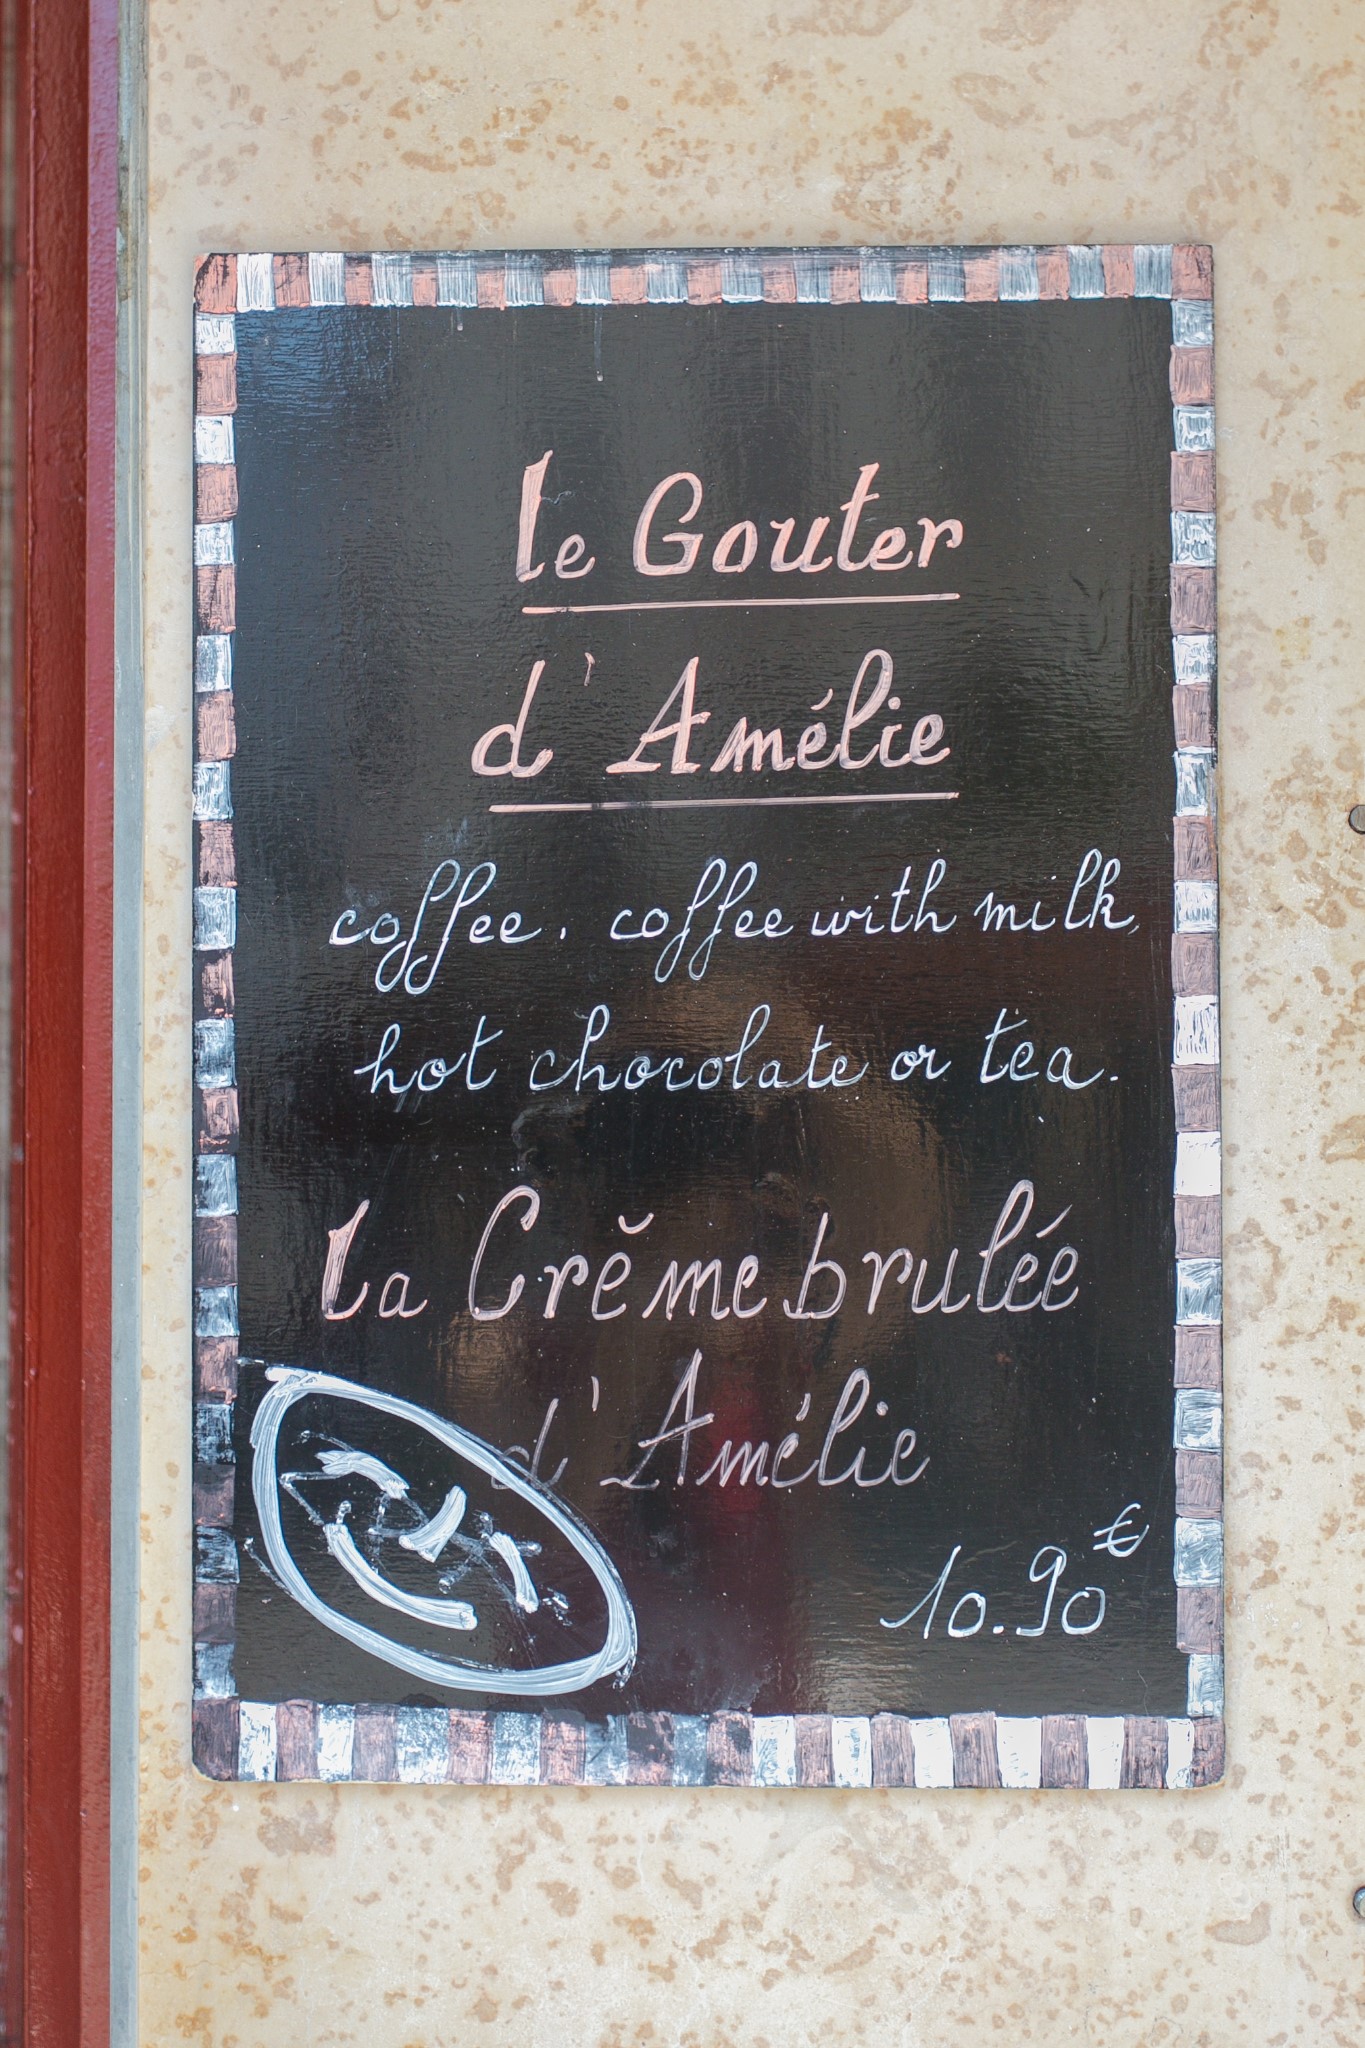 le Gouter
d'Amélie
coffee. coffee with milk,
hot chocolate or tea.
la Crĕme brulée
d'Amélie
10.90€